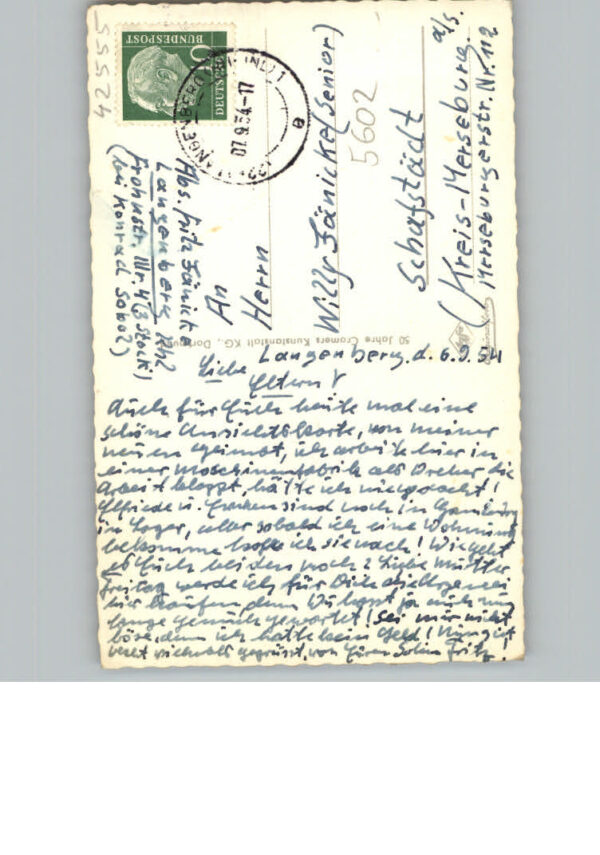 42555
DEUTSCHE
BUNDESPOST
LANGENBERG (RHEINL) 1
07.9.54.-17
a
5602
An
Herrn
Willy Jänicke (Senior)
Schafstädt a/S.
(Kreis-Merseburg,
Merseburgerstr. Nr. 112
Abs. Fritz Jänicke
Langenberg Rhl
Frohnstr. Nr. 4 (3 Stock)
(bei Konrad Sobol)
50 Jahre Cramers Kunstanstalt KG., Dortmund
Langenberg, d. 6.9.54
Liebe
Eltern!
Auch für Euch heute mal eine
schöne Ansichtskarte, von meiner
neuen Heimat, ich arbeite hier in
einer Maschinenfabrik als Dreher die
Arbeit klappt, hätte ich nie gedacht!
Elfriede u. sind noch in
im Lager, aber sobald ich eine Wohnung
bekomme hole ich sie nach! Wie geht
es Euch beiden noch? Liebe Mutter
Freitag werde ich für Dich
kaufen, denn Du hast ja auch nun
lange genug gewartet! Sei mir nicht
böse, denn ich hatte kein Geld! Nun seit
vielmals gegrüsst, von Euren Sohn Fritz!